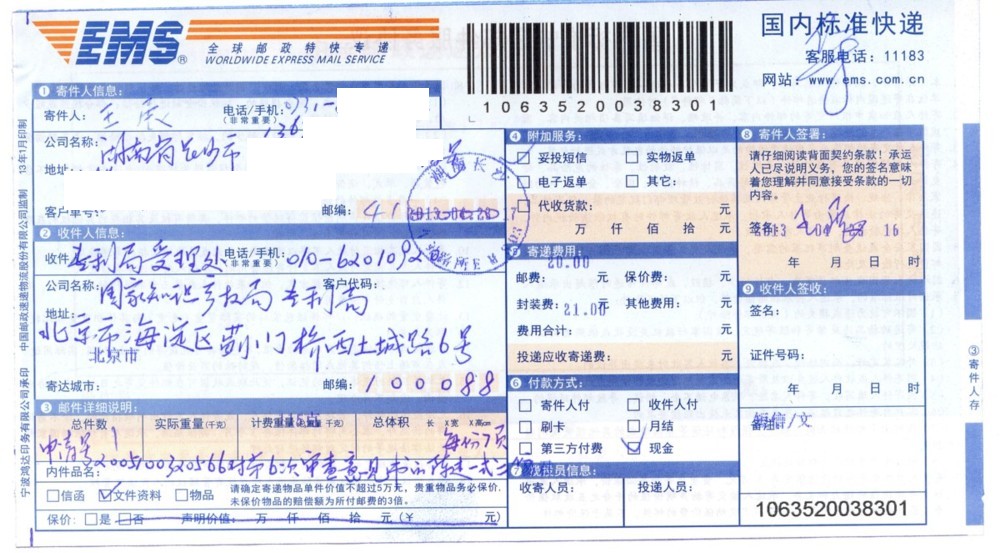 EMS®
全球邮政特快专递
WORLDWIDE EXPRESS MAIL SERVICE
1063520038301
国内标准快递
客服电话：11183
网站：www.ems.com.cn
❶ 寄件人信息：
寄件人：
电话/手机：
（非常重要）
公司名称：湖南省长沙市
地址
客户单号：
邮编：4
❷ 收件人信息：
收件 专利局受理处
电话/手机：010-6201092
（非常重要）
公司名称：国家知识产权局专利局
客户代码：
地址：
北京市海淀区蓟门桥西土城路6号
北京市
寄达城市：
邮编：100088
❸ 邮件详细说明：
总件数
实际重量（千克）
计费重量（千克）
总体积
长 X宽 X高cm
申请号 1
每份7页
内件品名：
信函 文件资料 物品
请确定寄递物品单件价值不超过5万元，贵重物品务必保价，
未保价物品的赔偿额为所付邮费的3倍。
保价： 是 否 声明价值： 万 仟 佰 拾 元（￥ 元）
❹ 附加服务：
妥投短信 实物返单
电子返单 其它：
代收货款： 元
万 仟 佰 拾 元
寄递费用：
20.00
邮费： 元 保价费： 元
封装费：21.00 其他费用： 元
费用合计： 元
投递应收寄递费： 元
❻ 付款方式：
寄件人付 收件人付
刷卡 月结
第三方付费 现金
投员信息：
收寄人员： 投递人员：
❽ 寄件人签署：
请仔细阅读背面契约条款！承运
人已尽说明义务，您的签名意味
着您理解并同意接受条款的一切
内容。
16
年 月 日 时
❾ 收件人签收：
签名：
证件号码：
年 月 日 时
1063520038301
③寄件人存
宁波鸿达印务有限公司承印 中国邮政速递物流股份有限公司监制 13年1月印制